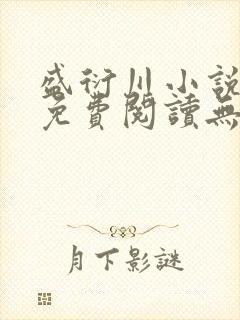 盛衍川小說
免費閱讀無
月下影謎